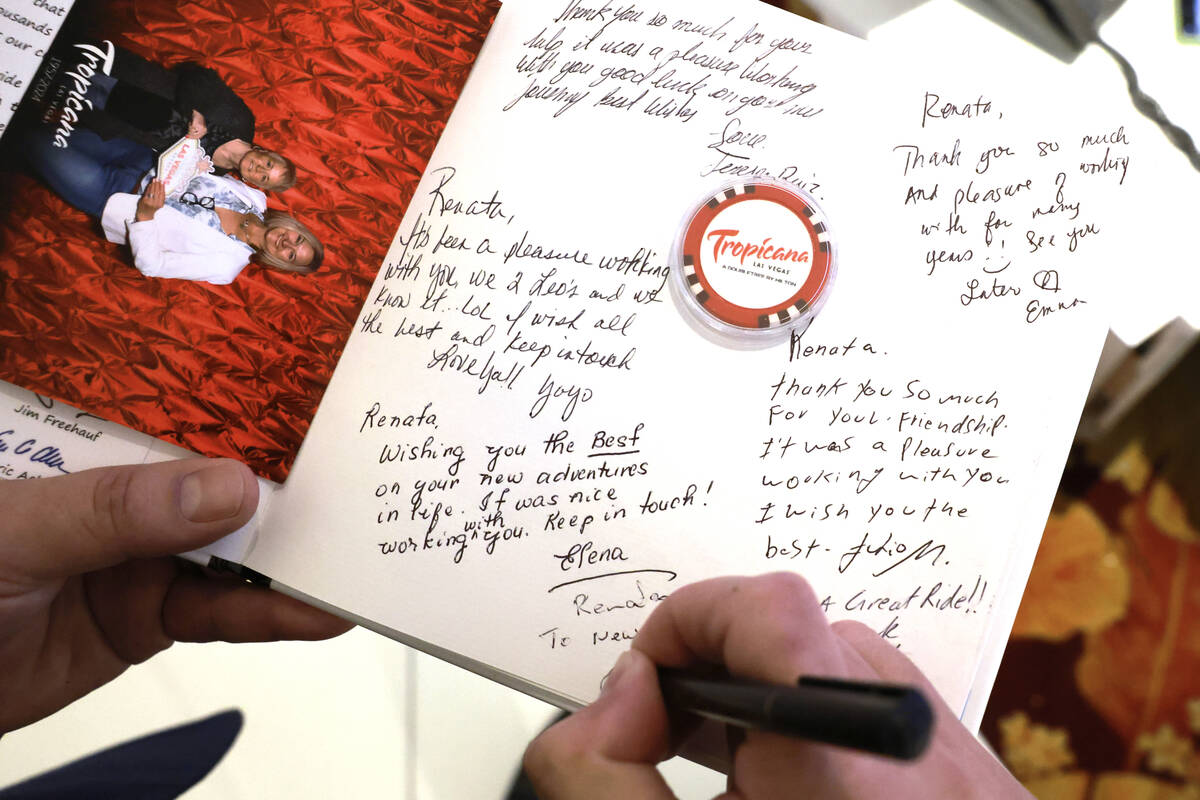 that
thousands
our c
ride
Tropicana
LAS VEGAS
1957-2024
LAS VEGAS
Jim Freehauf
ric
Thank you so much for your
help it was a pleasure working
with you good luck on your
journey best wishes
Teresa Ruiz
Tropicana
LAS VEGAS
A DOUBLETREE BY HILTON
Renata,
Thank you so much
And pleasure of working
with for many
years!! See you
Later
Emma
Renata,
It's been a pleasure working
with you, we 2 Leo's and we
know it... Lol I wish all
the best and keep in touch
Love Yall Yoyo
Renata.
thank you so much
For your friendship.
It was a pleasure
working with you
I wish you the
best- Julio M.
Renata,
Wishing you the Best
on your new adventures
in life. It was nice
working with you. Keep in touch!
Elena
Renata
To New
A Great Ride!!